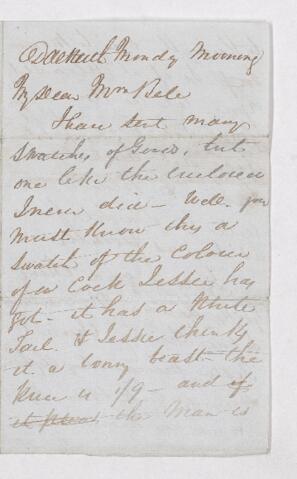 Dalkeith Monday Morning
My Dear Mrs Bele
I have sent many
Swatches of Goods, but
one like the inclosed
I never did - Well you
must know this a
swatch of the Colour
of a Cock Jessie has
got - it has a White
Tail & Jessie thinks
it a bonny beast the
Price is 1/9 - and if
it pleas the Man is